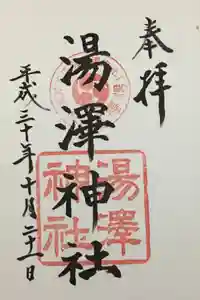 奉拝
湯澤神社
湯澤
神社
平成三十年十月二十一日